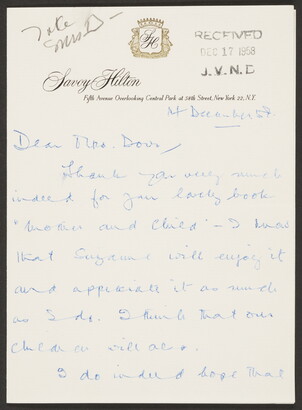 Take
Mrs D -
RECEIVED
DEC 17 1958
J. V. N. D
SH
Savoy Hilton
Fifth Avenue Overlooking Central Park at 58th Street, New York 22, N.Y.
December 58
Dear Mrs. Dows,
Thank you very much
indeed for your lovely book
"Mother and Child" - I know
that Suzanne will enjoy it
and appreciate it as much
as I do. I think that our
children will also.
I do indeed hope that